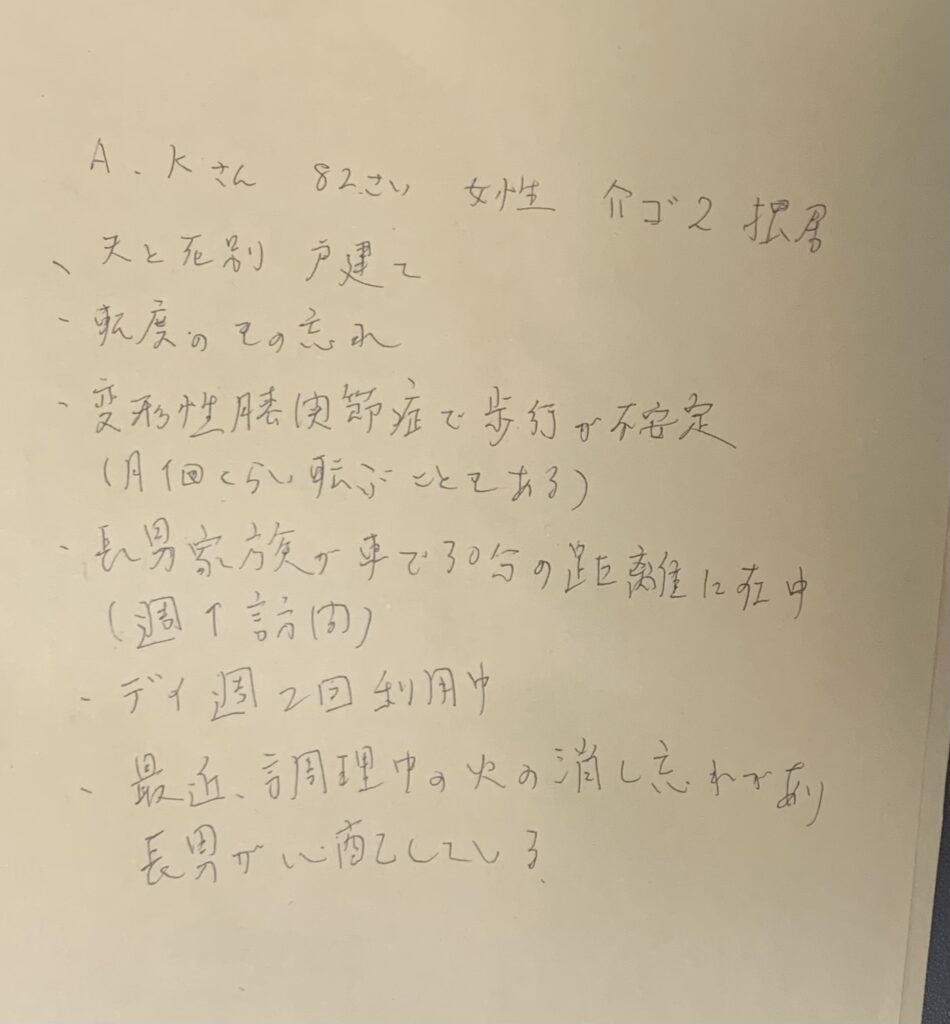 A.Kさん 82さい 女性 介ゴ2 独居
、夫と死別 戸建て
・軽度のもの忘れ
・変形性膝関節症で歩行が不安定
(月1回くらい転ぶこともある)
・長男家族が車で30分の距離に在中
(週1訪問)
・デイ週2回利用中
・最近、調理中の火の消し忘れがあり
長男が心配している.